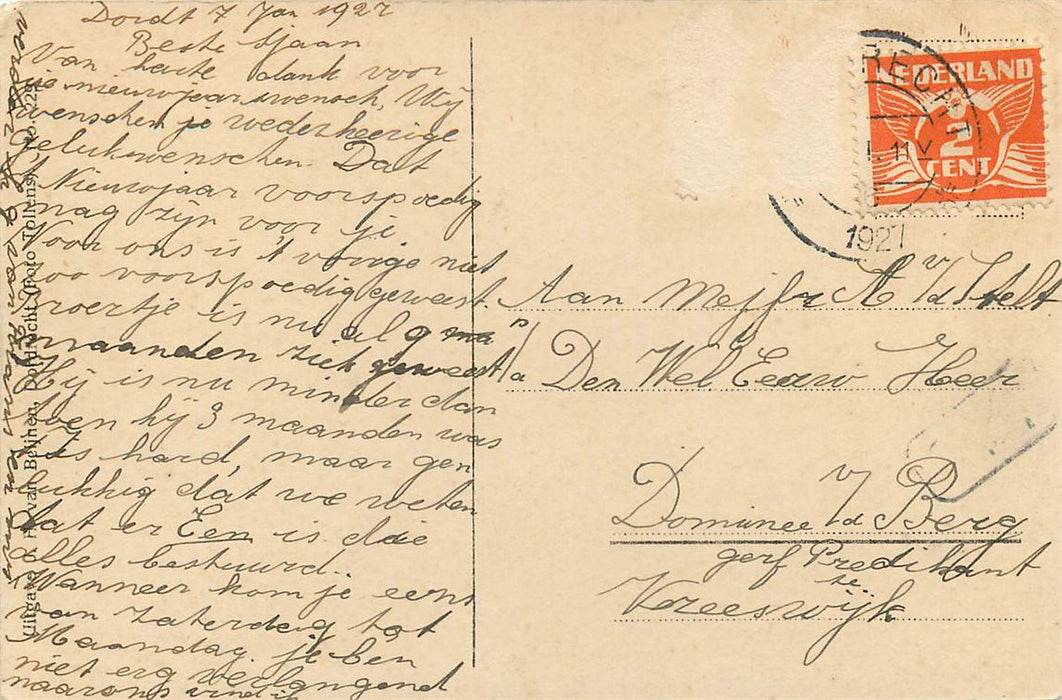 Dordt 7 Jan 1927
Beste Sjaan
Van harte dank voor
je nieuwjaarswensch, Wij
wenschen je wederkeerige
gelukwenschen. Dat
't Nieuwjaar voorspoedig
mag zijn voor je
Voor ons is 't vorige niet
zoo voorspoedig geweest.
Broertje is nu al 9
maanden ziek geweest
Hij is nu minder dan
toen hij 3 maanden was
't Is hard, maar geu
lukkig dat we weten
dat er Een is die
alles bestuurd.
Wanneer kom je eens
van Zaterdag tot
Maandag. je ben
niet erg verlangend
naar ons vind ik
Uitgave J. H. van Beijnen, Dordrecht (Foto Tollens), No.
NEDERLAND
2½
CENT
RECHT
1927
Aan Mejfr A v/d
p/a Den Wel Eerw Heer
Dominee v/d Berg
geref Predikant
te
Vreeswijk